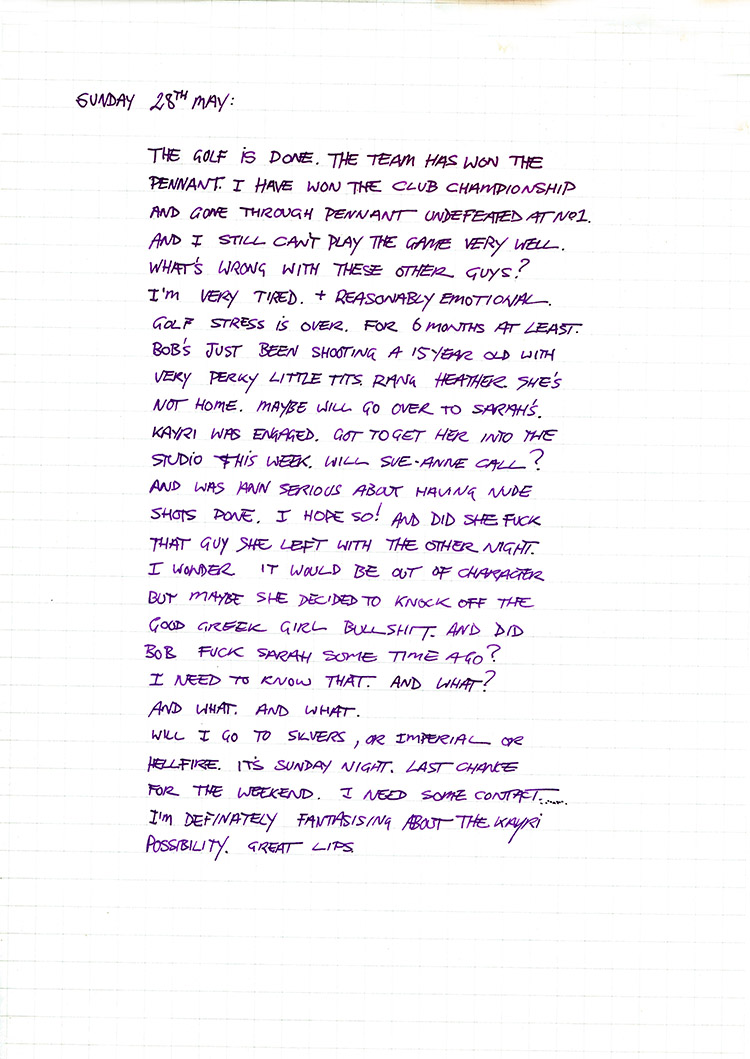 SUNDAY 28TH MAY:
THE GOLF IS DONE. THE TEAM HAS WON THE
PENNANT. I HAVE WON THE CLUB CHAMPIONSHIP
AND GONE THROUGH PENNANT UNDEFEATED AT No1.
AND I STILL CAN'T PLAY THE GAME VERY WELL.
WHAT'S WRONG WITH THESE OTHER GUYS?
I'M VERY TIRED. + REASONABLY EMOTIONAL.
GOLF STRESS IS OVER. FOR 6 MONTHS AT LEAST.
[omitted]
[omitted] RANG HEATHER. SHE'S
NOT HOME. MAYBE WILL GO OVER TO SARAH'S.
KAYRI WAS ENGAGED. GOT TO GET HER INTO THE
STUDIO THIS WEEK. WILL SUE-ANNE CALL?
AND WAS ANN SERIOUS ABOUT HAVING NUDE
SHOTS DONE. I HOPE SO! AND DID SHE FUCK
THAT GUY SHE LEFT WITH THE OTHER NIGHT.
I WONDER IT WOULD BE OUT OF CHARACTER
BUT MAYBE SHE DECIDED TO KNOCK OFF THE
GOOD GREEK GIRL BULLSHIT. AND DID
BOB FUCK SARAH SOME TIME AGO?
I NEED TO KNOW THAT. AND WHAT?
AND WHAT. AND WHAT.
WILL I GO TO SILVERS, OR IMPERIAL OR
HELLFIRE. IT'S SUNDAY NIGHT. LAST CHANCE
FOR THE WEEKEND. I NEED SOME CONTACT......
I'M DEFINATELY FANTASISING ABOUT THE KAYRI
POSSIBILITY. GREAT LIPS.